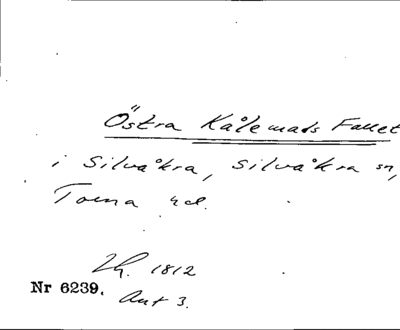 Östra Kålemads Fallet
i Silvåkra, Silvåkra sn,
Torna hd.
Lh. 1812
Nr 6239. Akt 3.